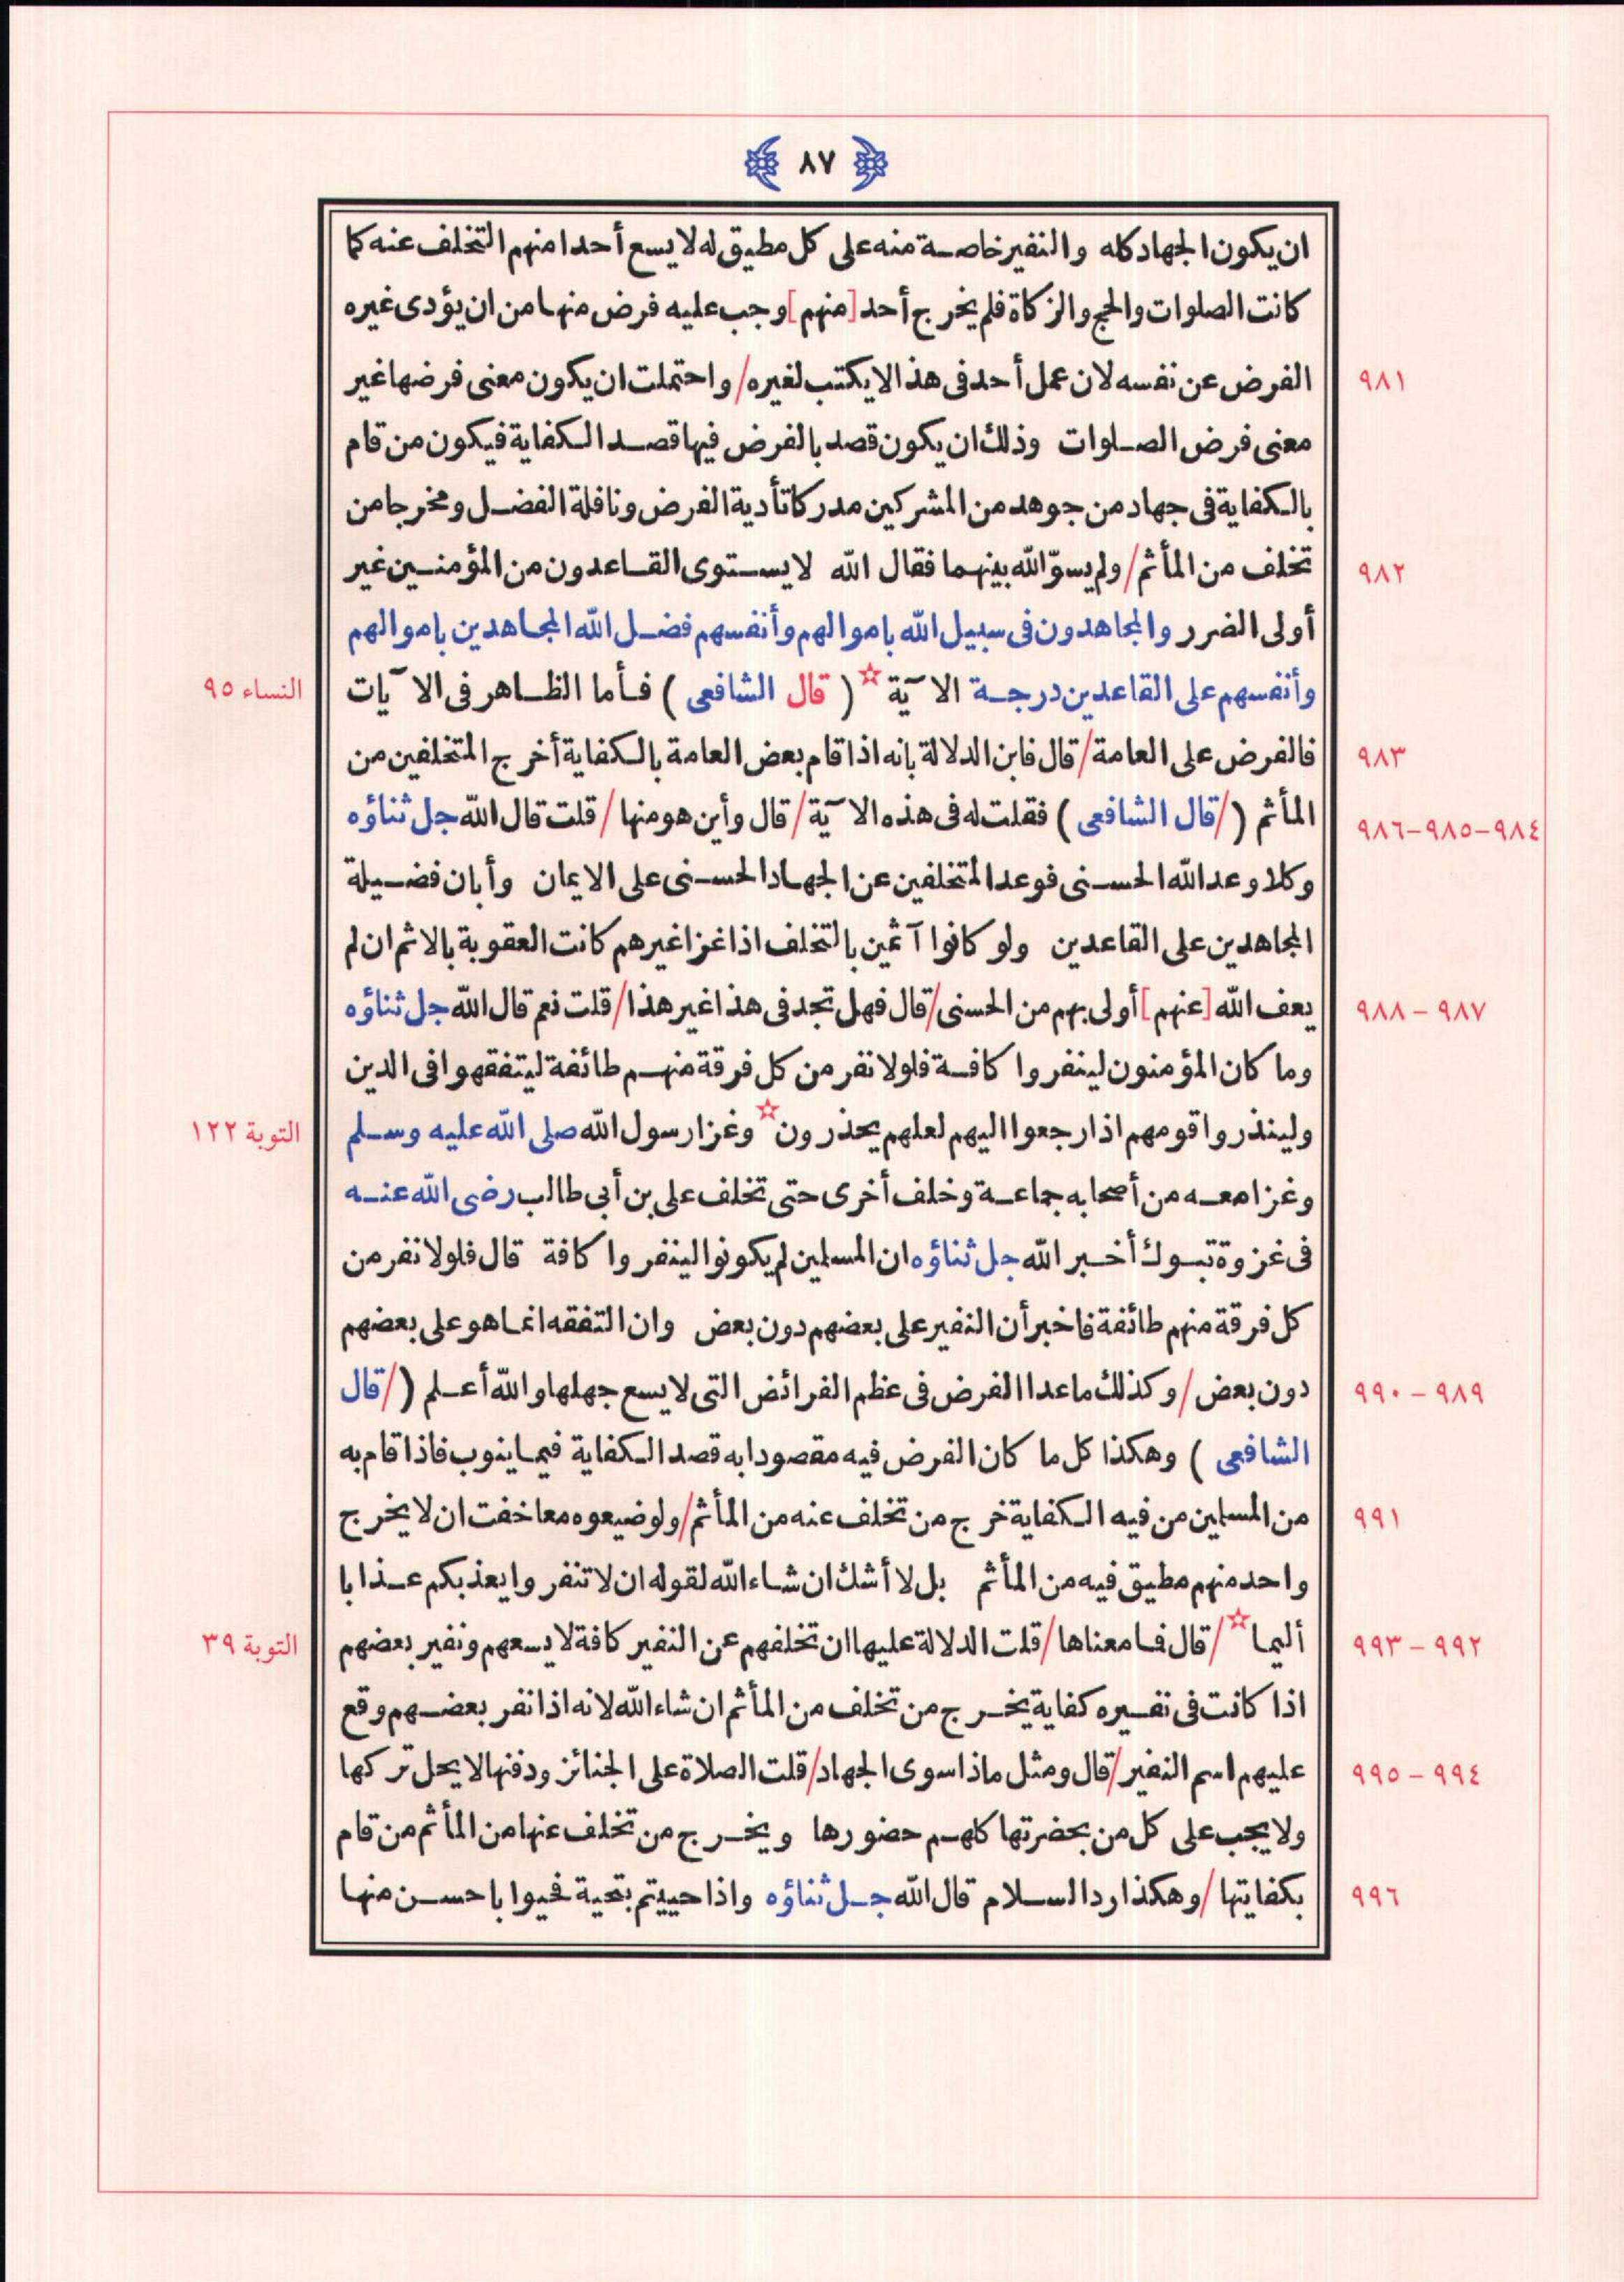 ٨٧
ان يكون الجهاد كله والنفير خاصة منه على كل مطيق له لا يسع أحدا منهم التخلف عنه كما
كانت الصلوات والحج والزكاة فلم يخرج أحد [منهم] وجب عليه فرض منها من ان يؤدى غيره
٩٨١ الفرض عن نفسه لان عمل أحد فى هذا لا يكتب لغيره/ واحتملت ان يكون معنى فرضها غير
معنى فرض الصلوات وذلك ان يكون قصد بالفرض فيها قصد الكفاية فيكون من قام
بالكفاية فى جهاد من جوهد من المشركين مدركا تأدية الفرض ونافلة الفضل ومخرجا من
٩٨٢ تخلف من المأثم/ ولم يسوّ الله بينهما فقال الله لا يستوى القاعدون من المؤمنين غير
أولى الضرر والمجاهدون فى سبيل الله باموالهم وأنفسهم فضل الله المجاهدين باموالهم
وأنفسهم على القاعدين درجة الآية ☆ ( قال الشافعى ) فأما الظاهر فى الآيات النساء ٩٥
٩٨٣ فالفرض على العامة/ قال فاين الدلالة بانه اذا قام بعض العامة بالكفاية أخرج المتخلفين من
٩٨٤-٩٨٥-٩٨٦ المأثم (/ قال الشافعى ) فقلت له فى هذه الآية/ قال وأين هو منها/ قلت قال الله جل ثناؤه
وكلا وعد الله الحسنى فوعد المتخلفين عن الجهاد الحسنى على الايمان وأبان فضيلة
المجاهدين على القاعدين ولو كانوا آثمين بالتخلف اذا غزا غيرهم كانت العقوبة بالاثم ان لم
٩٨٧ - ٩٨٨ يعف الله [عنهم] أولى بهم من الحسنى/ قال فهل تجد فى هذا غير هذا/ قلت نعم قال الله جل ثناؤه
وما كان المؤمنون لينفروا كافة فلولا نفر من كل فرقة منهم طائفة ليتفقهوا فى الدين
ولينذروا قومهم اذا رجعوا اليهم لعلهم يحذرون ☆ وغزا رسول الله صلى الله عليه وسلم التوبة ١٢٢
وغزا معه من أصحابه جماعة وخلف أخرى حتى تخلف على بن أبى طالب رضى الله عنه
فى غزوة تبوك أخبر الله جل ثناؤه ان المسلمين لم يكونوا لينفروا كافة قال فلولا نفر من
كل فرقة منهم طائفة فاخبر أن النفير على بعضهم دون بعض وان التفقه انما هو على بعضهم
٩٨٩ - ٩٩٠ دون بعض/ وكذلك ما عدا الفرض فى عظم الفرائض التى لا يسع جهلها والله أعلم (/ قال
الشافعى ) وهكذا كل ما كان الفرض فيه مقصودا به قصد الكفاية فيما ينوب فاذا قام به
٩٩١ من المسلمين من فيه الكفاية خرج من تخلف عنه من المأثم/ ولو ضيعوه معا خفت ان لا يخرج
واحد منهم مطيق فيه من المأثم بل لا أشك ان شاء الله لقوله ان لا تنفروا يعذبكم عذابا
٩٩٢ - ٩٩٣ أليما ☆/ قال فما معناها/ قلت الدلالة عليها ان تخلفهم عن النفير كافة لا يسعهم ونفير بعضهم التوبة ٣٩
اذا كانت فى نفيره كفاية يخرج من تخلف من المأثم ان شاء الله لانه اذا نفر بعضهم وقع
٩٩٤ - ٩٩٥ عليهم اسم النفير/ قال ومثل ماذا سوى الجهاد/ قلت الصلاة على الجنائز ودفنها لا يحل تركها
ولا يجب على كل من بحضرتها كلهم حضورها ويخرج من تخلف عنها من المأثم من قام
٩٩٦ بكفايتها/ وهكذا رد السلام قال الله جل ثناؤه واذا حييتم بتحية فحيوا باحسن منها